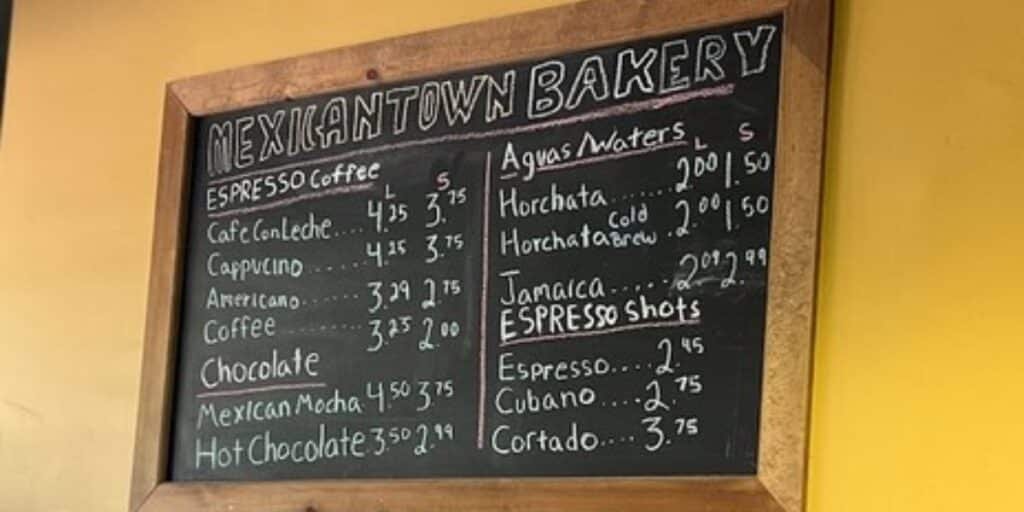 MEXICANTOWN BAKERY
ESPRESSO Coffee
L S
Cafe Con Leche.... 4.25 3.75
Cappucino...... 4.25 3.75
Americano...... 3.29 2.75
Coffee ........ 3.25 2.00
Chocolate
Mexican Mocha 4.50 3.75
Hot Chocolate 3.50 2.99
Aguas/Waters
L S
Horchata...... 2.00 1.50
Horchata Cold Brew . 2.00 1.50
Jamaica...... 2.09 2.99
ESPRESSO Shots
Espresso.... 2.45
Cubano .... 2.75
Cortado.... 3.75